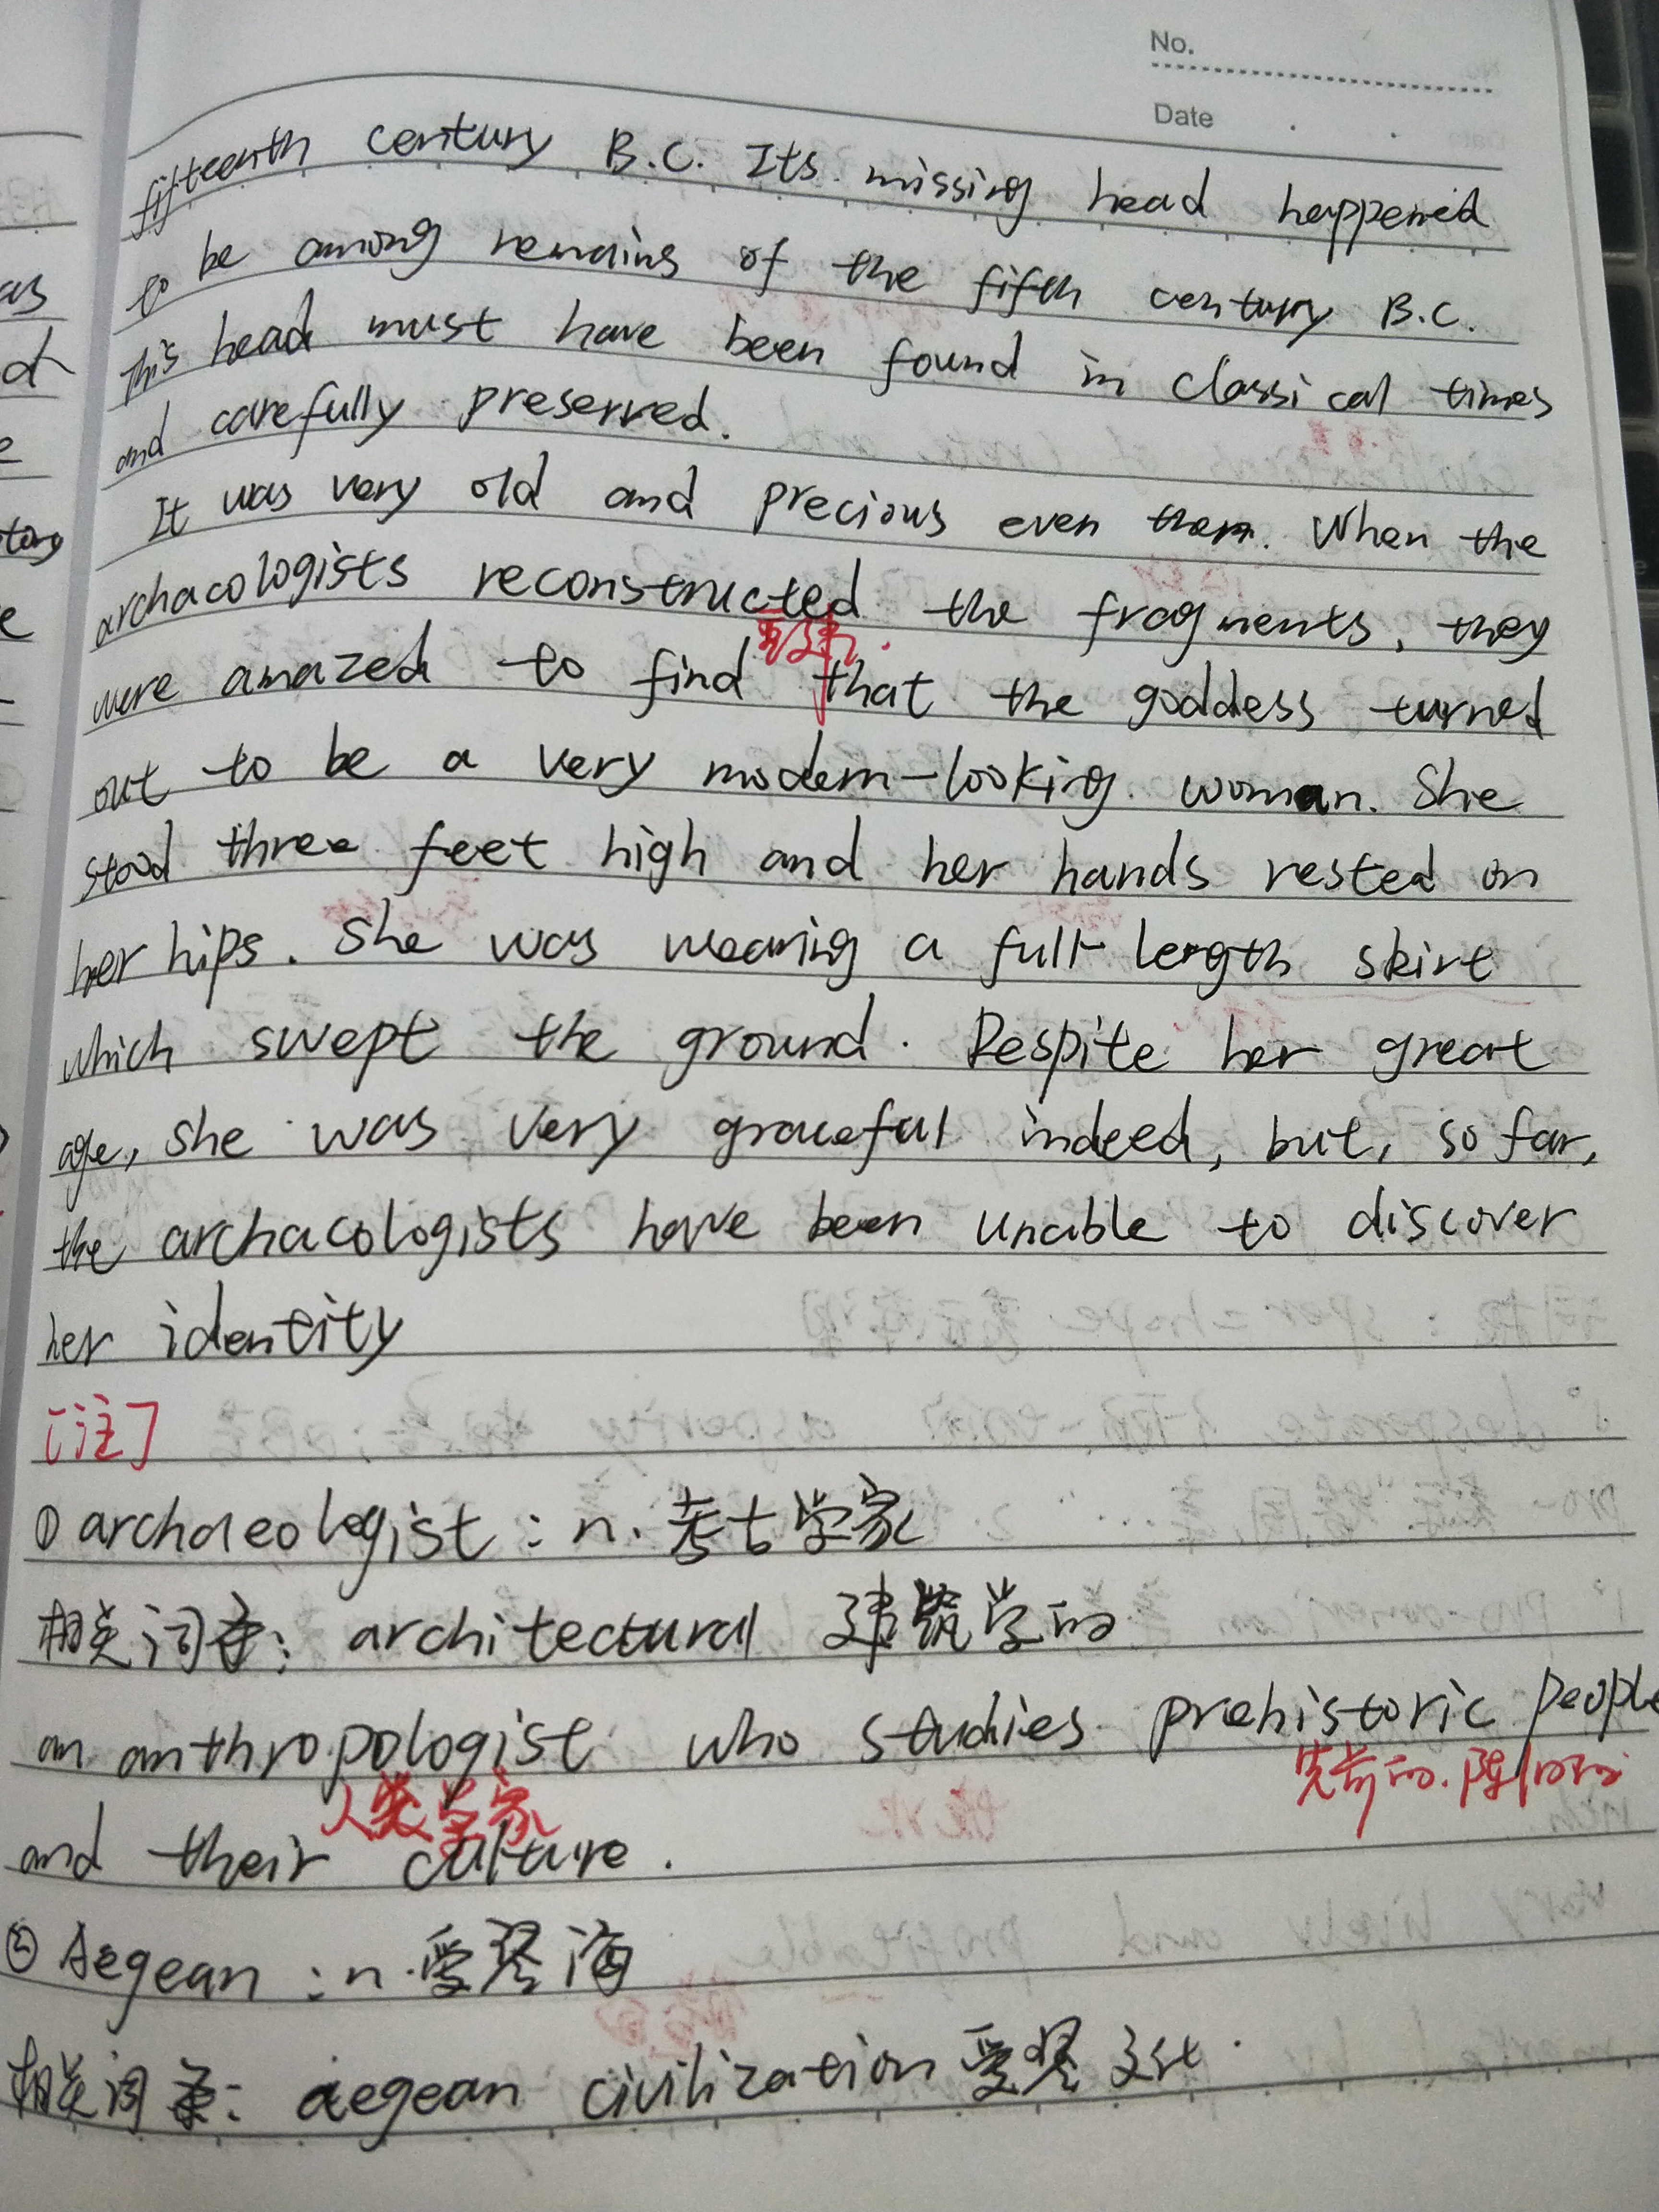 No.
Date
fifteenth century B.C. Its missing head happened
to be among remains of the fifth century B.C.
This head must have been found in classical times
and carefully preserved.
It was very old and precious even then. When the
archacologists reconstructed the fragments, they
重建
were amazed to find that the goddess turned
out to be a very modern-looking woman. She
stood three feet high and her hands rested on
her hips. She was wearing a full-length skirt
which swept the ground. Despite her great
age, she was very graceful indeed, but, so far,
the archacologists have been unable to discover
her identity
[注]
① archaeologist : n. 考古学家
相关词汇: architectural 建筑学的
an anthropologist who studies prehistoric people
人类学家
and their culture.
② Aegean : n. 爱琴海
相关词汇: aegean civilization 爱琴文化.